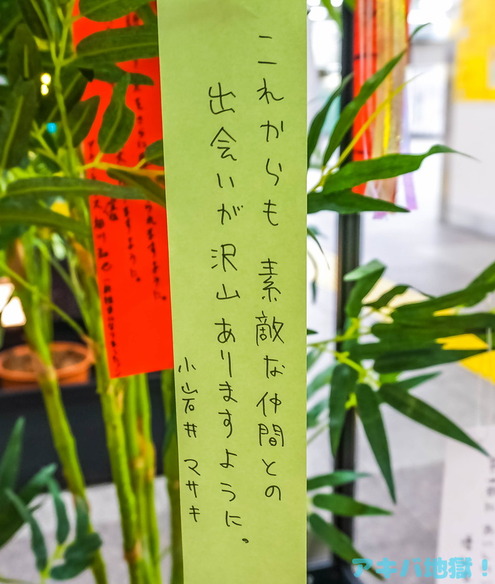 これからも 素敵な仲間との
出会いが沢山ありますように。
小岩井 マサキ
アキバ地獄！